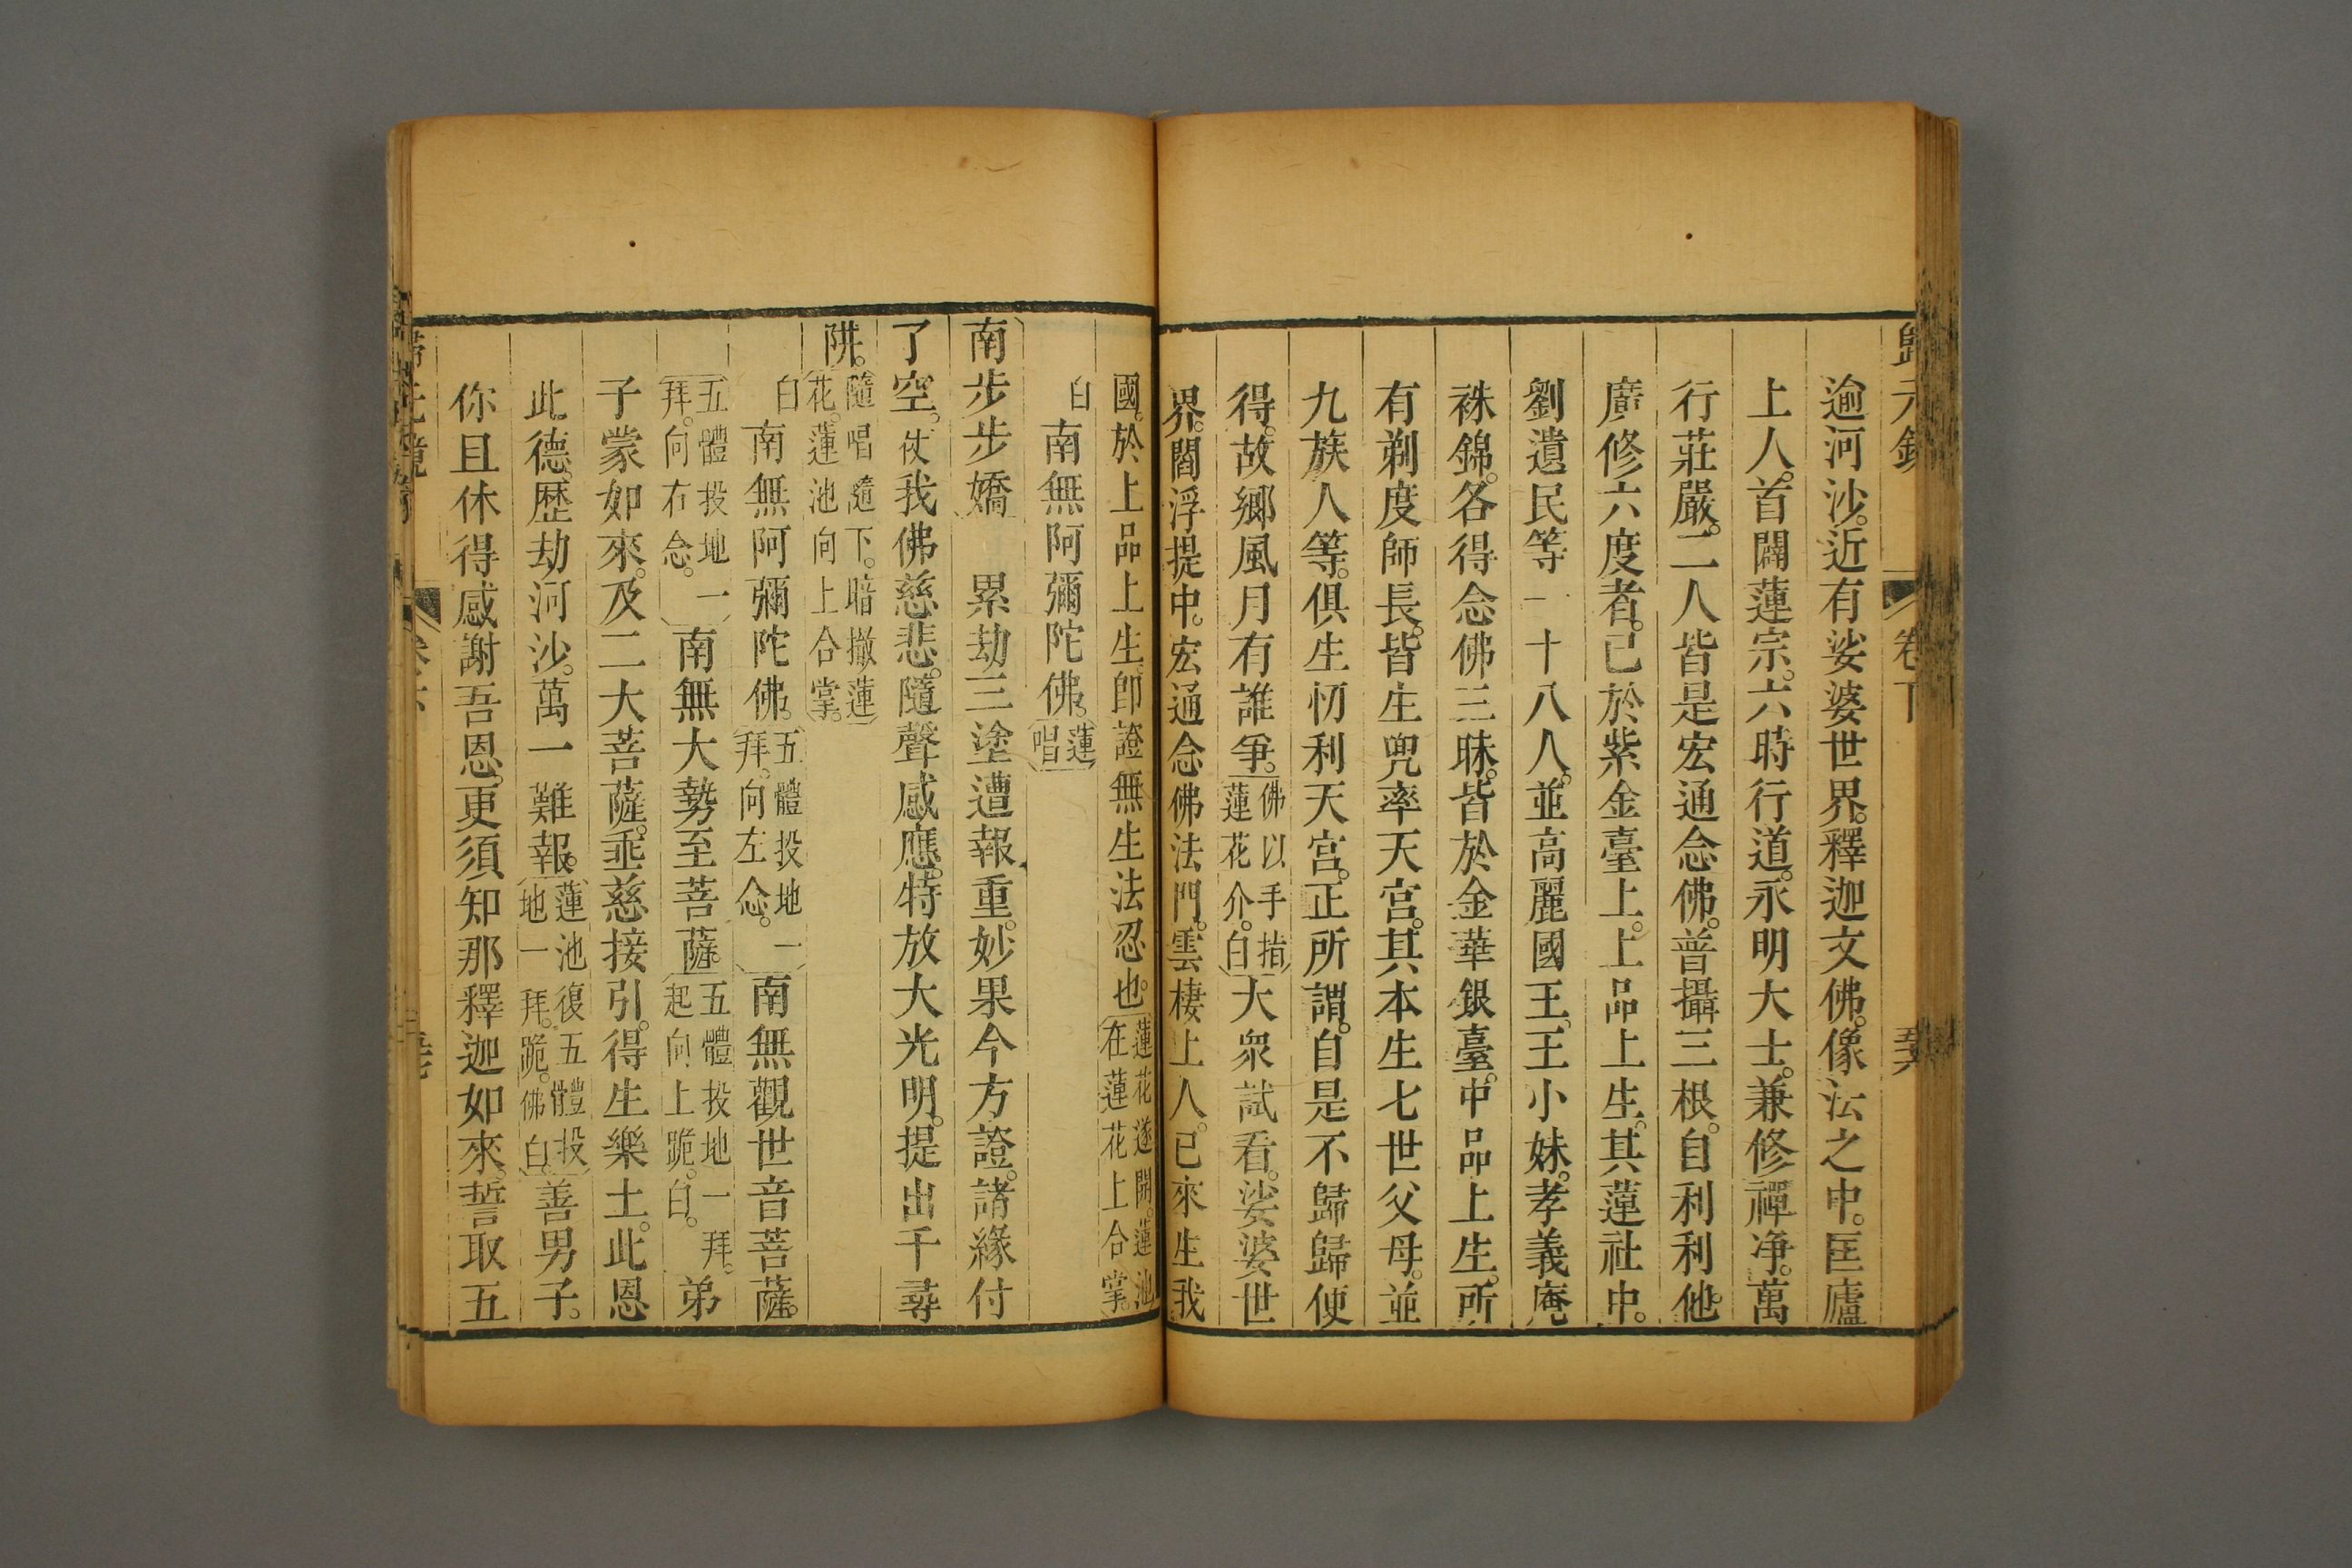 歸元鏡 卷下 五十六
逾河沙。近有娑婆世界。釋迦文佛。像法之中。匡廬
上人。首闢蓮宗。六時行道。永明大士。兼修禪净。萬
行莊嚴。二人皆是宏通念佛。普攝三根。自利利他。
廣修六度者。已於紫金臺上。上品上生。其蓮社中。
劉遺民等一十八人。並高麗國王。王小妹。孝義庵
袾錦。各得念佛三昧。皆於金華銀臺。中品上生。所
有剃度師長。皆生兜率天宮。其本生七世父母。並
九族人等。俱生忉利天宮。正所謂。自是不歸歸便
得。故鄉風月有誰爭。佛以手指蓮花介。白大衆試看。娑婆世
界。閻浮提中。宏通念佛法門。雲棲上人。已來生我
國。於上品上生。卽證無生法忍也。蓮花遂開。蓮池在蓮花上合掌。
白南無阿彌陀佛。蓮唱
南步步嬌 累劫三塗遭報重。妙果今方證。諸緣付
了空。仗我佛慈悲。隨聲感應。特放大光明。提出千尋
阱。隨唱隨下。暗撤蓮花。蓮池向上合掌。
白南無阿彌陀佛。五體投地一拜。向左念。南無觀世音菩薩。
五體投地一拜。向右念。南無大勢至菩薩。五體投地一拜。起向上跪。白。弟
子蒙如來。及二大菩薩。垂慈接引。得生樂土。此恩
此德。歷劫河沙。萬一難報。蓮池復五體投地一拜。跪。佛白。善男子。
你且休得感謝吾恩。更須知那釋迦如來。誓取五